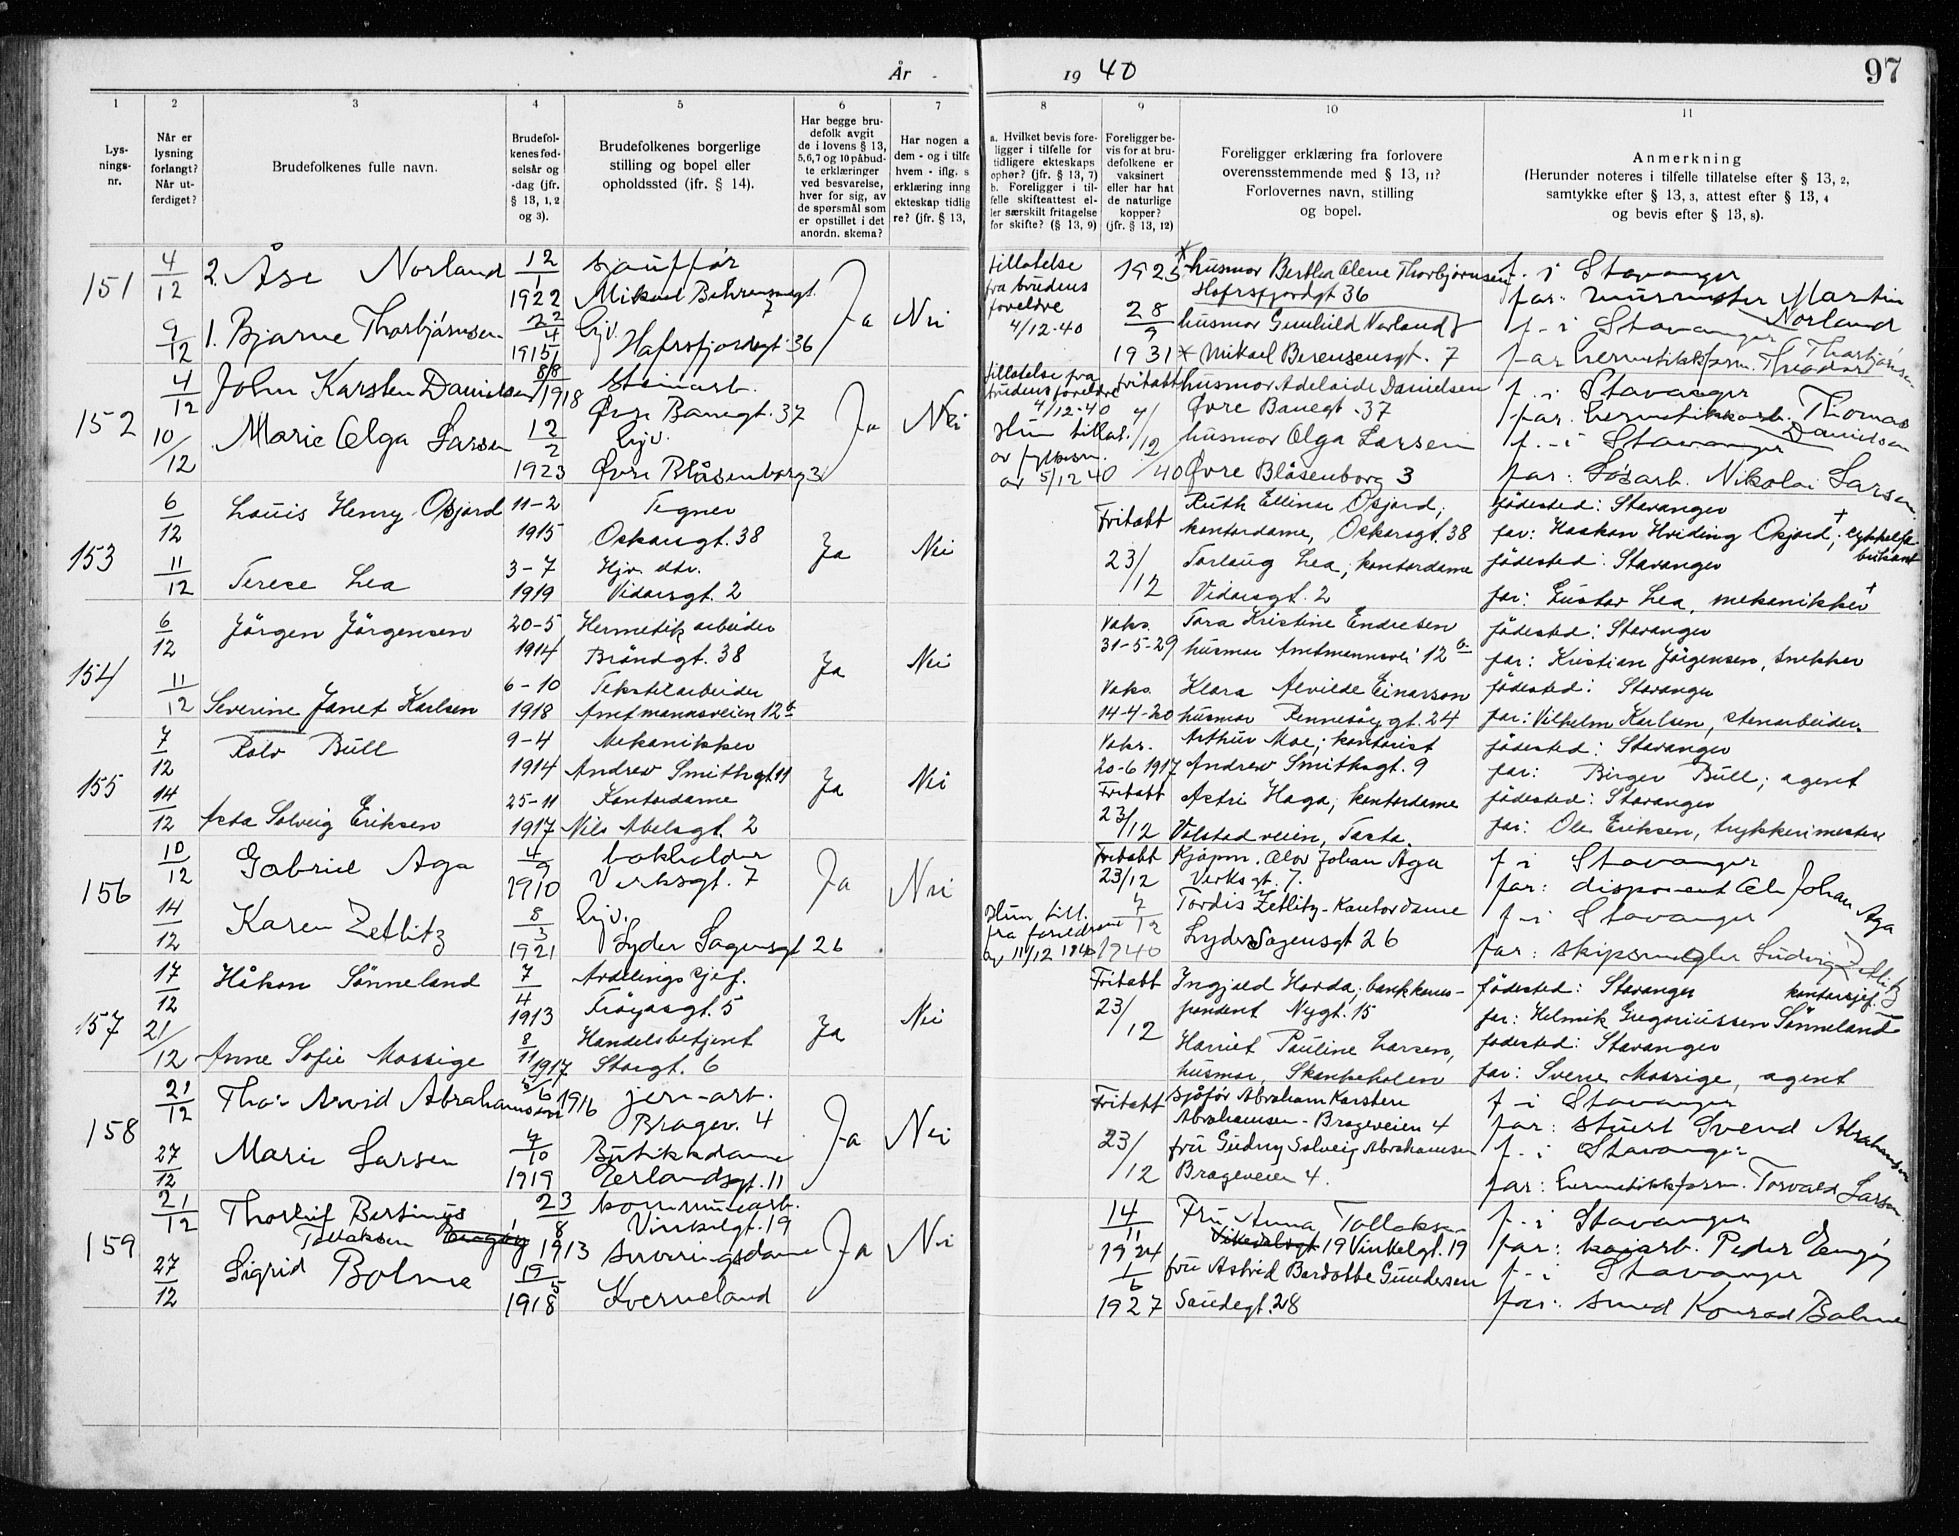 År
19 40
97
1
2
3
4
5
6
7
8
9
10
11
Lys-
nings-
nr.
Når er
lysning
forlangt?
Når ut-
ferdiget?
Brudefolkenes fulle navn.
Brudefol-
kenes fød-
selsår og
-dag (jfr.
§ 13, 1, 2
og 3).
Brudefolkenes borgerlige
stilling og bopel eller
opholdssted (ifr. § 14).
Har begge bru-
defolk avgit
de i lovens § 13,
5,6,7 og 10 påbud-
te erklæringer
ved besvarelse,
hver for sig, av
de spørsmål som
er opstillet i det
anordn. skema?
Har nogen a
dem - og i tilfe
hvem - iflg. s
erklæring inng
ekteskap tidlig
re? (jfr. § 13,
a. Hvilket bevis fore-
ligger i tilfelle for
tidligere ekteskaps
ophør? (jfr. § 13, 7)
b. Foreligger i til-
felle skifteattest el-
ler særskilt fritagelse
for skifte? (§ 13, 9)
Foreligger be-
vis for at bru-
defolkene er
vaksinert
eller har hat
de naturlige
kopper?
(jfr. § 13, 12)
Foreligger erklæring fra forlovere
overensstemmende med § 13, 11?
Forlovernes navn, stilling
og bopel.
Anmerkning
(Herunder noteres i tilfelle tillatelse efter § 13, 2,
samtykke efter § 13, 3, attest efter § 13, 4
og bevis efter § 13, 8).
151
4/12
9/12
2. Åse Norland
1. Bjarne Thorbjørnsen
12/1
1922
22/4
1915
sjauffør
Mikael Behrensensgt.
7
hjv.
Hafrsfjordsgt. 36
Ja
Nei
tillatelse
fra brudens
foreldre
4/12-40
1925
28/9
1931
husmor Berthe Olene Thorbjørnsen
Hafrsfjordgt 36
husmor Gunhild Norland
Mikael Berensensgt. 7
f. i Stavanger
far: murmester Martin
Norland
f. i Stavanger
far hermetikkform. Theodor Thorbjørnsen
152
4/12
10/12
John Karsten Danielsen
Marie Olga Larsen
8/8
1918
12/2
1923
Steinarb.
Øvre Banegt. 37
hjv.
Øvre Blåsenborg 3
Ja
Nei
tillatelse fra
brudens foreldre
4/12-40
Hun tillat.
av fylkesm.
av 5/12 40
fritatt
7/12
/40
husmor Adelaide Danielsen
Øvre Banegt. 37
husmor Olga Larsen
Øvre Blåsenborg 3
f. i Stavanger
far. hermetikkarb. Thomas
Danielsen
f. i Stavanger
far: Løsarb. Nikolai Larsen
153
6/12
11/12
Louis Henry Opsjord
Terese Lea
11-2
1915
3-7
1919
Tegner
Oskarsgt. 38
Hjv. dtr.
Vidarsgt. 2
Ja
Nei
Fritatt
23/12
Ruth Ellinor Opsjord,
kontordame, Oskarsgt. 38
Torlaug Lea, kontordame
Vidarsgt. 2
fødested: Stavanger
far: Haakon Hviding Opsjord,
fødested: Stavanger
far: Gustav Lea, mekanikker
154
6/12
11/12
Jørgen Jørgensen
Severine Janet Karlsen
20-5
1914
6-10
1918
Hermetikarbeider
Brøndgt. 38
Tekstilarbeider
Amtmannsveien 12a
Ja
Nei
Vaks.
31-5-29
Vaks.
14-4-20
Tora Kristine Endresen
husmor Amtmannsvei 12a
Klara Alvilde Einarsson
husmor Rennesøygt. 24
fødested: Stavanger
far: Kristian Jørgensen, snekker
fødested: Stavanger
far: Vilhelm Karlsen, stenarbeider.
155
7/12
14/12
Rolv Bull
Asta Solveig Eriksen
9-4
1914
25-11
1917
Mekanikker
Andrew Smithsgt. 11
Kontordame
Nils Abelsgt. 2
Ja
Nei
Vaks.
20-6 1917
Fritatt
23/12
Arthur Moe, kontorist
Andrew Smithsgt. 9
Astri Haga, kontordame
Volstadveien, Tasta.
fødested: Stavanger
far: Birger Bull, agent
fødested: Stavanger
far: Ole Eriksen, trykkerimester
156
10/12
14/12
Gabriel Aga
Karen Zetlitz
4/9
1910
8/3
1921
bokholder
Verksgt. 7
hjv.
Lyder Sagensgt 26
Ja
Nei
Hun till.
fra foreldrene
av 11/12 1940
Fritatt
23/12
7/12
1940
Kjøpm. Olav Johan Aga
Verksgt. 7.
Tordis Zetlitz - Kontordame
Lyder Sagensgt 26
f i Stavanger
far: disponent Ole Johan Aga
f i Stavanger
far: skipsmegler Ludvig Zetlitz
157
17/12
21/12
Håkon Sønneland
Anne Sofie Mossige
7/4
1913
8/11
1917
Avdelingssjef.
Frøyasgt. 5
Handelsbetjent
Storgt. 6
Ja
Nei
Fritatt
23/12
Ingjald Horda, bankkores-
pondent Nygt. 15
Harriet Pauline Larsen,
husmor, Skankeholen
fødested: Stavanger
kontorsjef
far: Helmik Gregoriussen Sønneland
fødested: Stavanger
far: Sverre Mossige, agent
158
21/12
27/12
Thor Arvid Abrahamsen
Marie Larsen
5/6
1916
4/10
1919
jern-arb.
Bragev. 4
Butikkdame
Erlandsgt. 11
Ja
Nei
Fritatt
23/12
sjøfør Abraham Karsten
Abrahamsen - Brageveien 4
fru Gudny Solveig Abrahamsen
Brageveien 4.
f i Stavanger
far: stuert Svend Abrahamsen
f. i Stavanger
far: hermetikkform. Torvald Larsen
159
21/12
27/12
Thorleif Bertinus
Tollaksen Engøy
Sigrid Bolme
23/8
1913
19/5
1918
kommunearb.
Vinkelgt. 19
serveringsdame
Kverneland
Ja
Nei
14/11
1924
1/6
1927
Fru Anna Tollaksen
Vikedalsgt 19 Vinkelgt. 19
fru Astrid Berdotte Gundersen
Saudegt. 28
f. i Stavanger
far: kaiarb. Peder Engøy
f. i Stavanger
far: smed Konrad Bolme